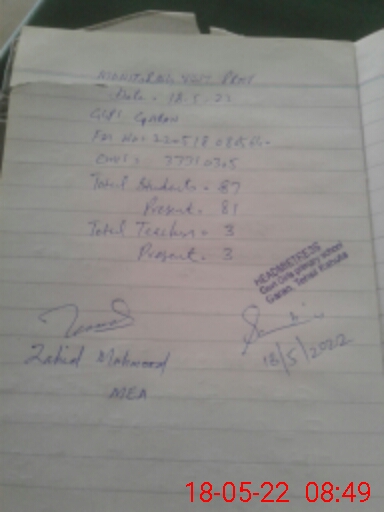 Monitoring Visit Proof
Date. 18.5.22
GGPS Garan
Total Students. 87
Present. 81
Total Teachers. 3
Present. 3
HEADMISTRESS
Govt Girls primary school
Garan, Tehsil Kahuta
18/5/2022
Zahid Mahmood
MEA
18-05-22 08:49